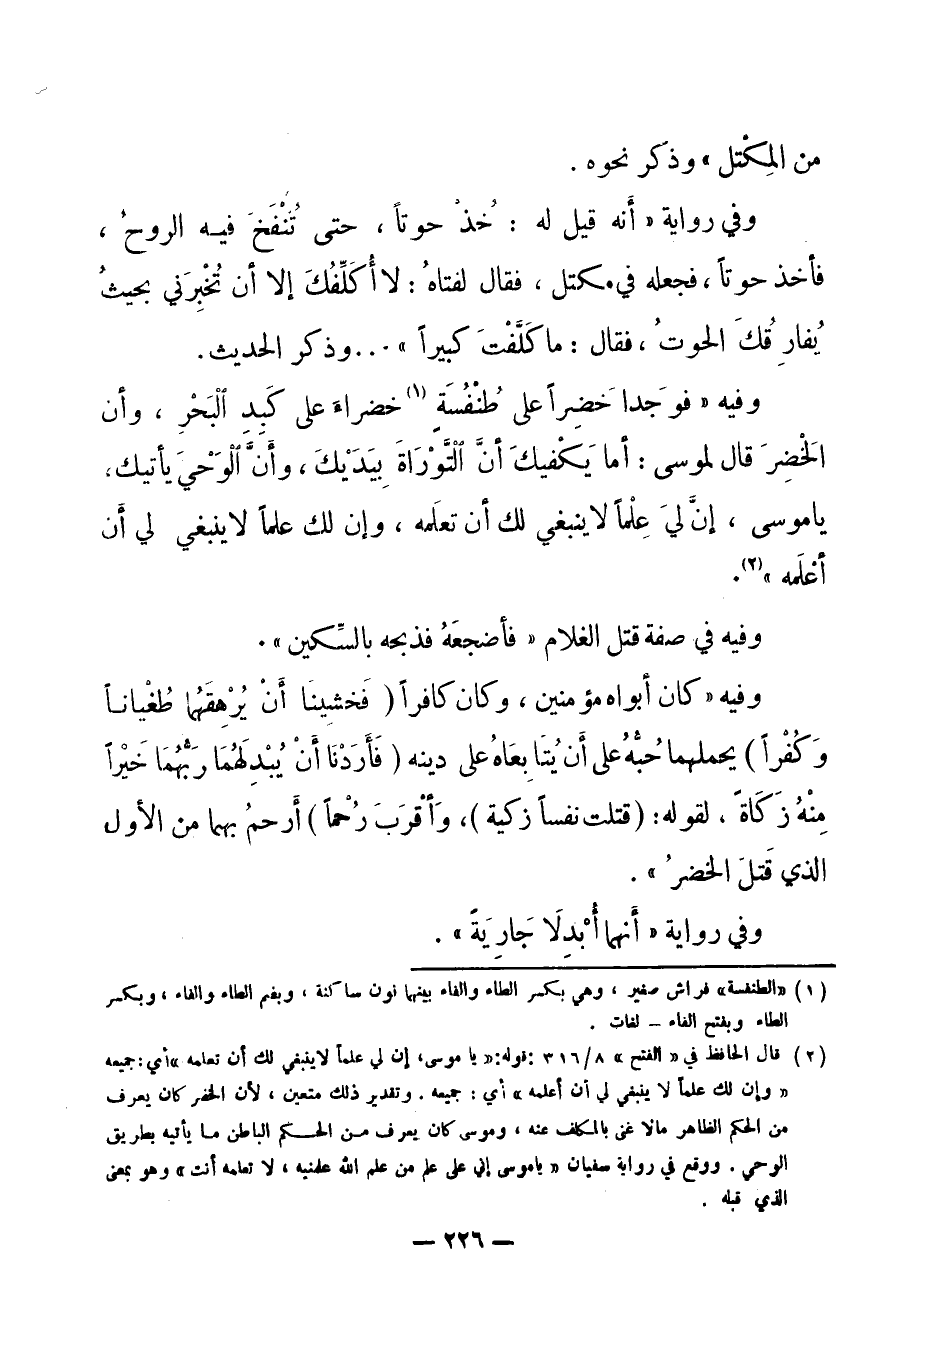 من المِكْتل » وذكر نحوه .
وفي رواية « أَنه قيل له : خُذْ حوتاً ، حتى تُنْفَخَ فيه الروحُ ،
فأخذ حوتاً ، فجعله في مكتل ، فقال لفتاهُ : لا أُكَلِّفُكَ إلا أن تُخْبِرَني بحيثُ
يُفارِقُكَ الحوتُ ، فقال : ما كَلَّفْتَ كبيراً » ... وذكر الحديث .
وفيه « فوجدا خَضِراً على طُنْفُسَةٍ (١) خضراءَ على كَبِدِ ٱلبَحْرِ ، وأن
الخَضِرَ قال لموسى : أما يَكْفيكَ أنَّ ٱلتَّوْرَاةَ بِيَدَيْكَ ، وأنَّ ٱلْوَحْيَ يأتيك ،
ياموسى ، إنَّ ليَ عِلْماً لا ينبغي لك أن تعلَمه ، وإن لك علماً لا ينبغي لي أن
أعْلَمه » (٢) .
وفيه في صفة قتل الغلام « فأضجعَهُ فذبحه بالسِّكين » .
وفيه « كان أبواه مؤمنين ، وكان كافراً ( فَخشينَا أَنْ يُرْهِقَهُما طُغْياناً
وَكُفْراً ) يحملهما حُبُّهُ على أَن يُتَابِعَاهُ على دينه ( فَأَرَدْنَا أَنْ يُبْدِلَهُمَا رَبُّهُمَا خَيْراً
مِنْهُ زَكَاةً ، لقوله : ( قتلت نفساً زكية ) ، وَأَقْرَبَ رُحْماً ) أَرحمُ بهما من الأول
الذي قَتلَ الخضرُ » .
وفي رواية « أَنهما أُبْدِلَا جَارِيَةً » .
(١) «الطنفسة» فراش صغير ، وهي بكسر الطاء والفاء بينهما نون ساكنة ، وبضم الطاء والفاء ، وبكسر
الطاء وبفتح الفاء – لغات .
(٢) قال الحافظ في « الفتح » ٣١٦/٨ : قوله : « يا موسى، إن لي علماً لا ينبغي لك أن تعلمه » أي : جميعه
« وإن لك علماً لا ينبغي لي أن أعلمه » أي : جميعه . وتقدير ذلك متعين ، لأن الخضر كان يعرف
من الحكم الظاهر مالا غنى بالمكلف عنه ، وموسى كان يعرف من الحكم الباطن ما يأتيه بطريق
الوحي . ووقع في رواية سفيان « ياموسى إني على علم من علم الله علمنيه ، لا تعلمه أنت » وهو بمعنى
الذي قبله .
– ٢٢٦ –